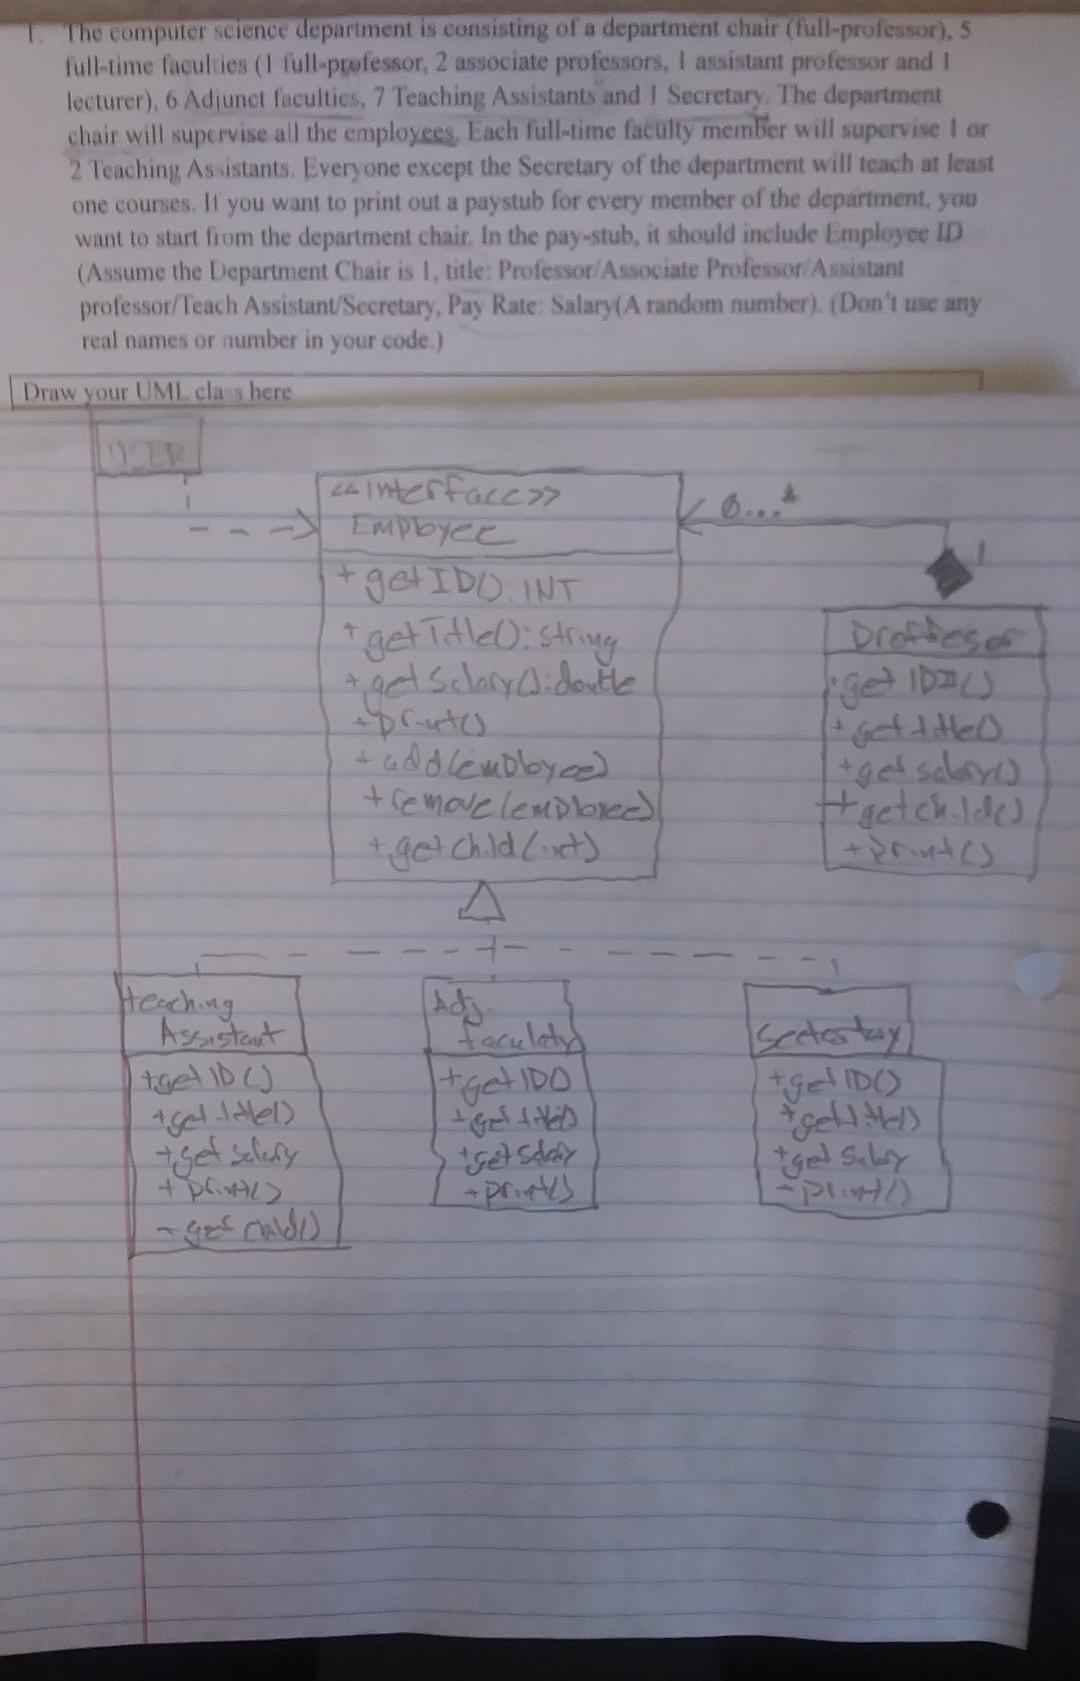 1. The computer science department is consisting of a department chair (full-professor), 5
full-time faculties (1 full-professor, 2 associate professors, 1 assistant professor and 1
lecturer), 6 Adjunct faculties, 7 Teaching Assistants and 1 Secretary. The department
chair will supervise all the employees. Each full-time faculty member will supervise 1 or
2 Teaching Assistants. Everyone except the Secretary of the department will teach at least
one courses. If you want to print out a paystub for every member of the department, you
want to start from the department chair. In the pay-stub, it should include Employee ID
(Assume the Department Chair is 1, title: Professor/Associate Professor/Assistant
professor/Teach Assistant/Secretary, Pay Rate: Salary(A random number). (Don't use any
real names or number in your code.)
Draw your UML class here
USER
<<Interface>>
Employee
+ getID(): INT
+ getTitle(): string
+ getSalary(): double
+ print()
+ add(employee)
+ remove(employee)
+ getChild(int)
0...*
1
getID()
+ getTitle()
+ getsalary()
+ getchild()
+ print()
teaching
Assistant
+getID()
+getTitle()
+getsalary
+ print()
- getchild()
Adj.
+getID()
+getTitle()
+getsalary
+print()
+getID()
+getTitle()
+getSalary
- print()